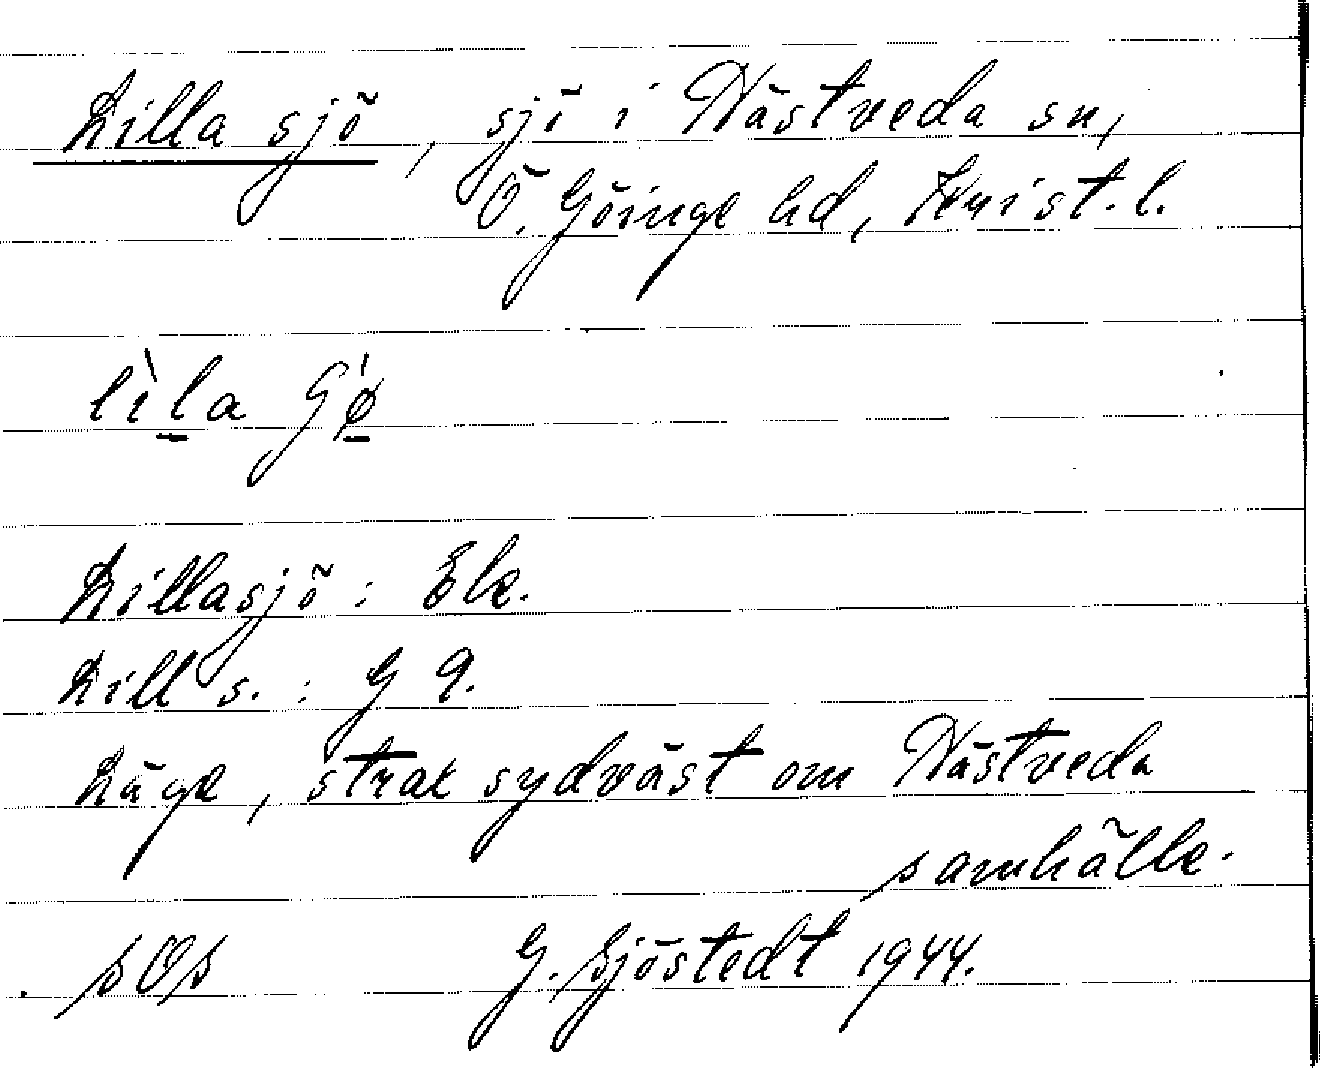 Lilla sjö, sjö i Hästveda sn,
Ö. Göinge hd, Krist. l.
lìla ʃǿ
Lillasjö: Ek.
Lill s.: G 9.
Läge, strax sydväst om Hästveda
samhälle.
SOS G. Sjöstedt 1944.